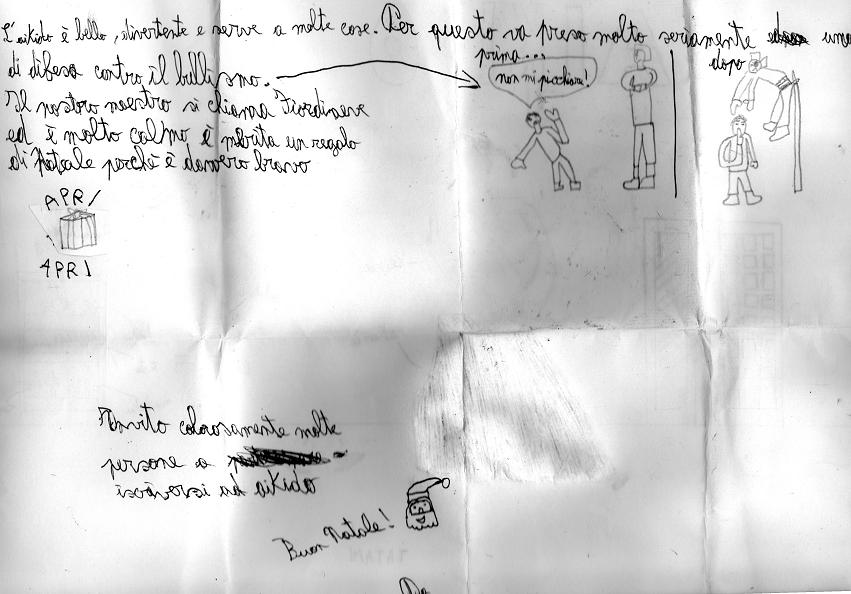 L'aikido è bello, divertente e serve a molte cose. Per questo va preso molto seriamente
di difesa contro il bullismo.
Il nostro maestro si chiama
ed è molto calmo è merita un regalo
di Natale perché è davvero bravo
prima...
non mi picchiare!
dopo
APRI
APRI
Invito calorosamente molte
persone a
iscriversi ad aikido
Buon Natale!
Da